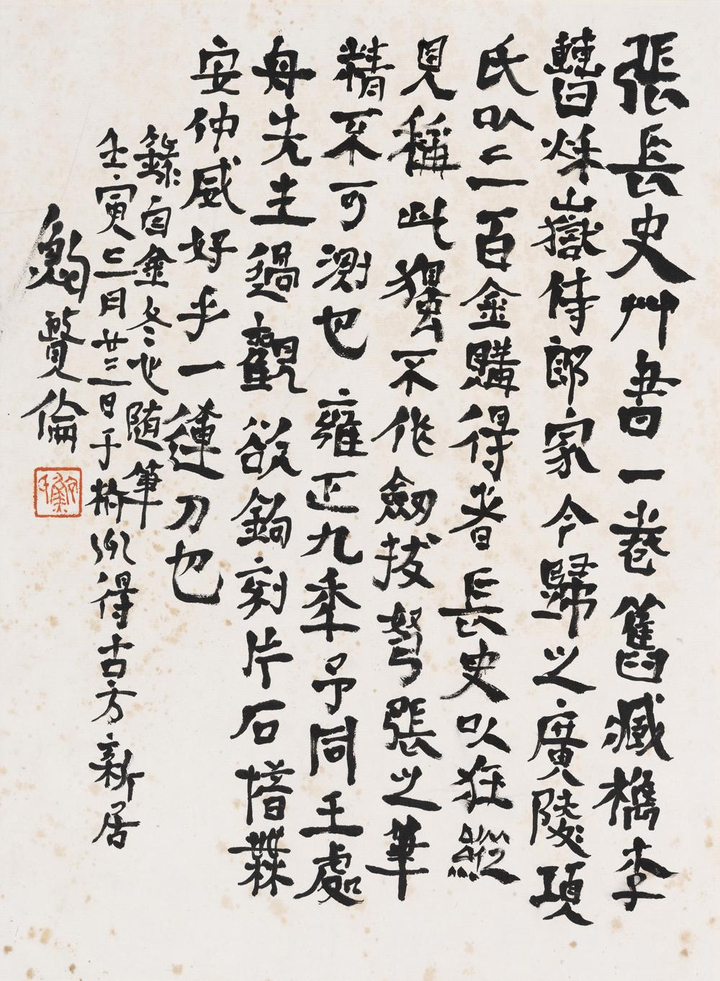 張長史艸書一卷舊臧檇李
曹秌嶽侍郎家今歸之廣陵項
氏以三百金購得者長史以狂縱
見稱此獨不作劍拔弩張之筆
精不可測也雍正九年予同王處
舟先生過觀欲鉤刻片石惜無
安仲威好手一運刀也
錄自金冬心随筆
壬寅三月廿三日于得古方新居
鮑賢倫